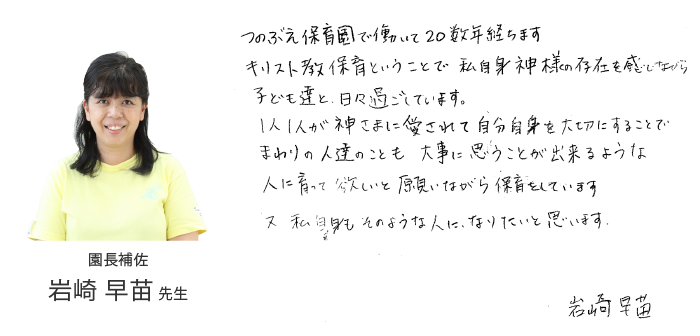 つのぶえ保育園で働いて20数年経ちます
キリスト教保育ということで 私自身神様の存在を感じながら
子ども達と、日々過ごしています。
1人1人が神さまに愛されて自分自身を大切にすることで
まわりの人達のことも 大事に思うことが出来るような
人に育って欲しいと願いながら保育をしています
又 私自身もそのような人に、なりたいと思います.
岩崎 早苗
園長補佐
岩崎 早苗 先生